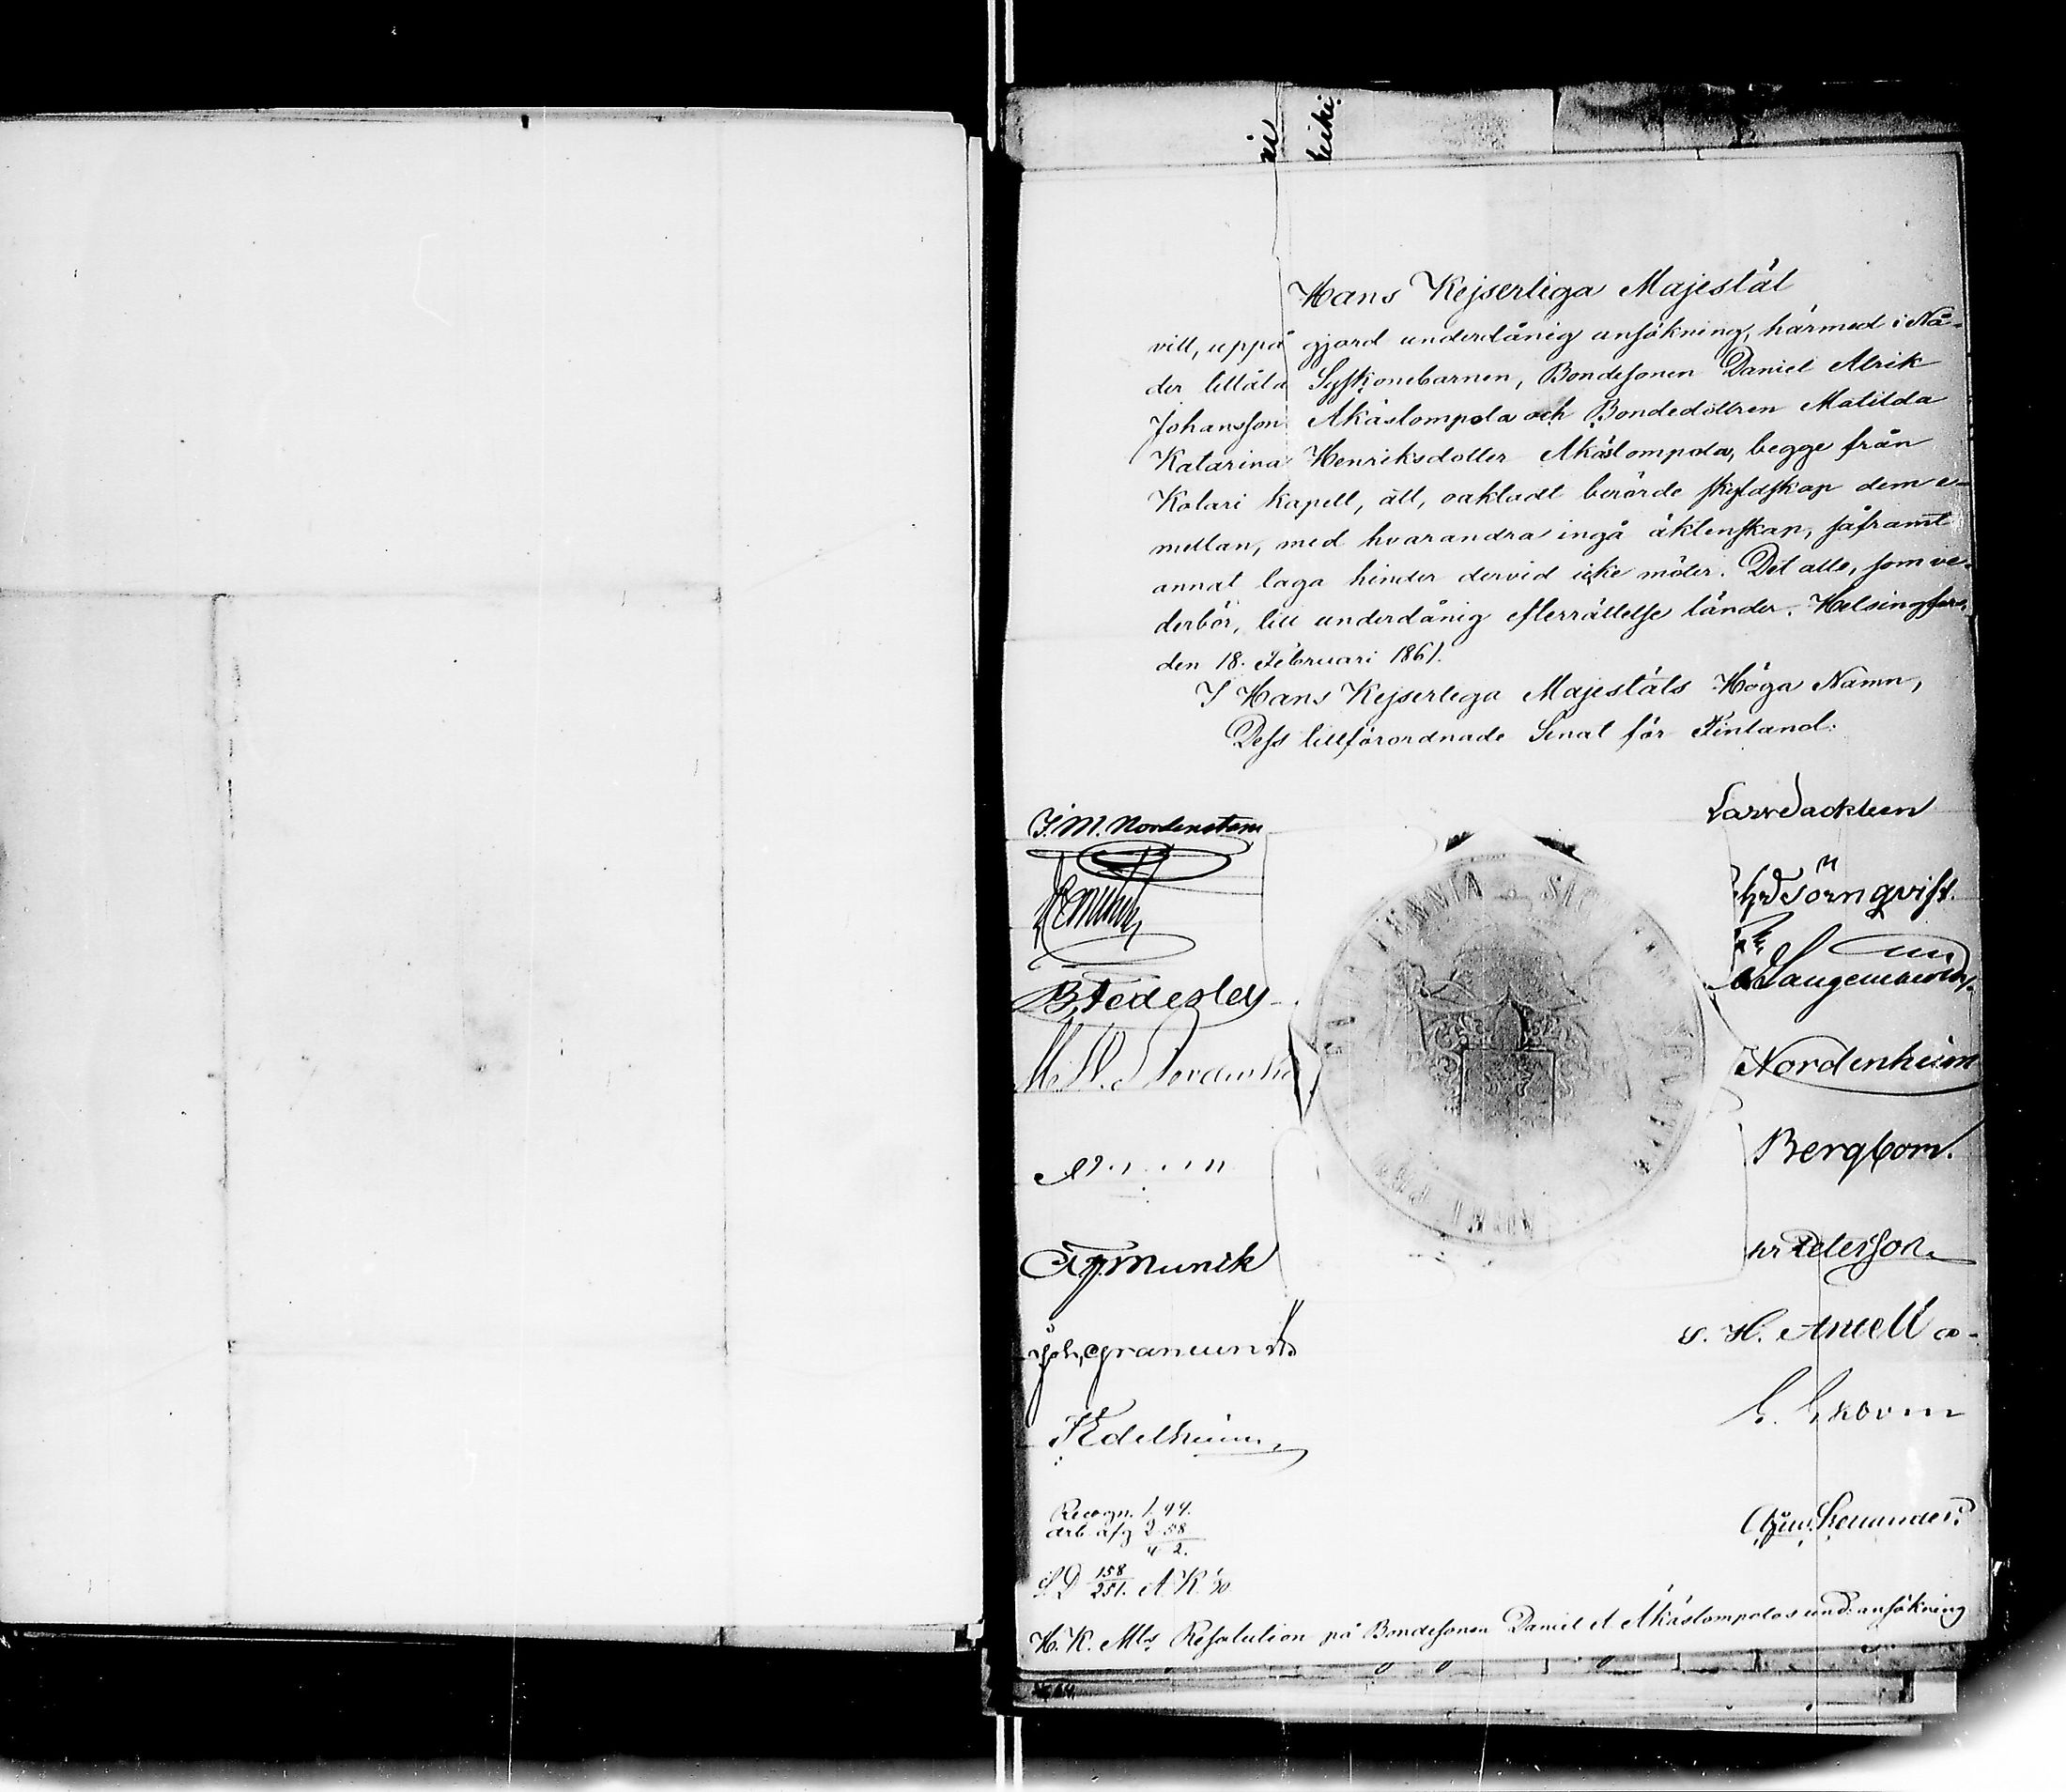 Hans Kejserliga Majestät
vill, uppå gjord underdånig ansökning, härmed i Nå-
der tillåta Syskonebarnen, Bondesonen Daniel Alrik
Johansson Äkäslompola och Bondedottren Matilda
Katarina Henriksdotter Äkäslompola, begge från
Kolari kapell, att, oaktadt berörde skyldskap dem e-
mellan, med hvarandra ingå äktenskap, såframt
annat laga hinder dervid icke möter. Det alle, som ve-
derbör, till underdånig efterrättelse länder. Helsingfors,
den 18. Februari 1861.
I Hans Kejserliga Majestäts Höga Namn,
Dess tillförordnade Senat för Finland:
J. M. Nordenstam
Lars Sackleen
Törnqvist
B. Federley
Langenskiöld
Nordenheim
Bergbom.
Munck
Peterson
Joh. Granlund
S. H. Antell
Edelheim
Recogn. 1. 44.
arb. afg 2 58
4 2.
S. D 158/251. A. K. 1/30
H. K. Mts Resolution på Bondesonen Daniel A Äkäslompolos und: ansökning